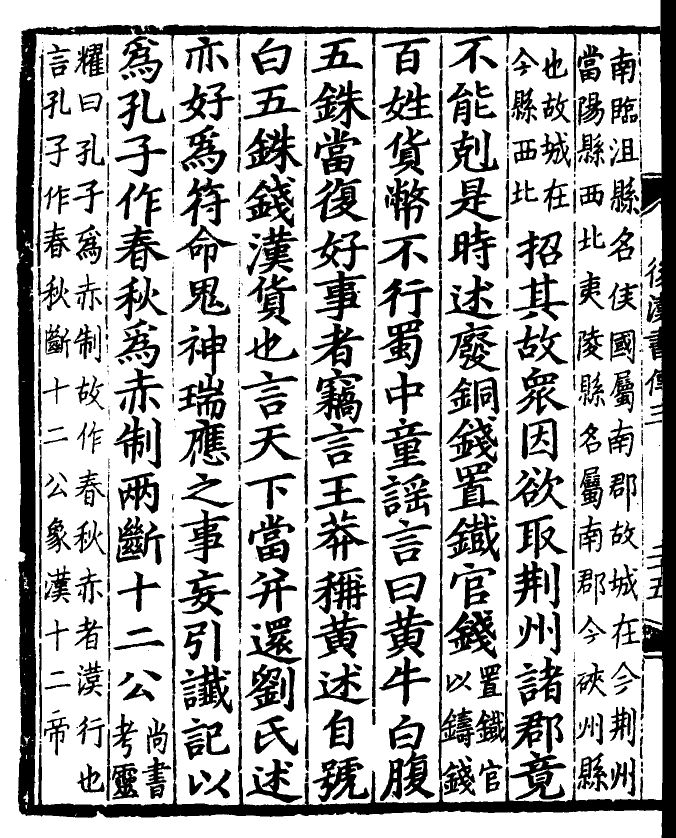 後漢書傳三
二十五
南臨沮縣名侯國屬南郡故城在今荆州
當陽縣西北夷陵縣名屬南郡今硤州縣
也故城在
今縣西北
招其故衆因欲取荆州諸郡竟
不能剋是時述廢銅錢置鐵官錢
置鐵官
以鑄錢
百姓貨幣不行蜀中童謡言曰黄牛白腹
五銖當復好事者竊言王莽稱黄述自號
白五銖錢漢貨也言天下當并還劉氏述
亦好爲符命鬼神瑞應之事妄引讖記以
爲孔子作春秋爲赤制而斷十二公
尚書
考靈
耀曰孔子爲赤制故作春秋赤者漢行也
言孔子作春秋斷十二公象漢十二帝